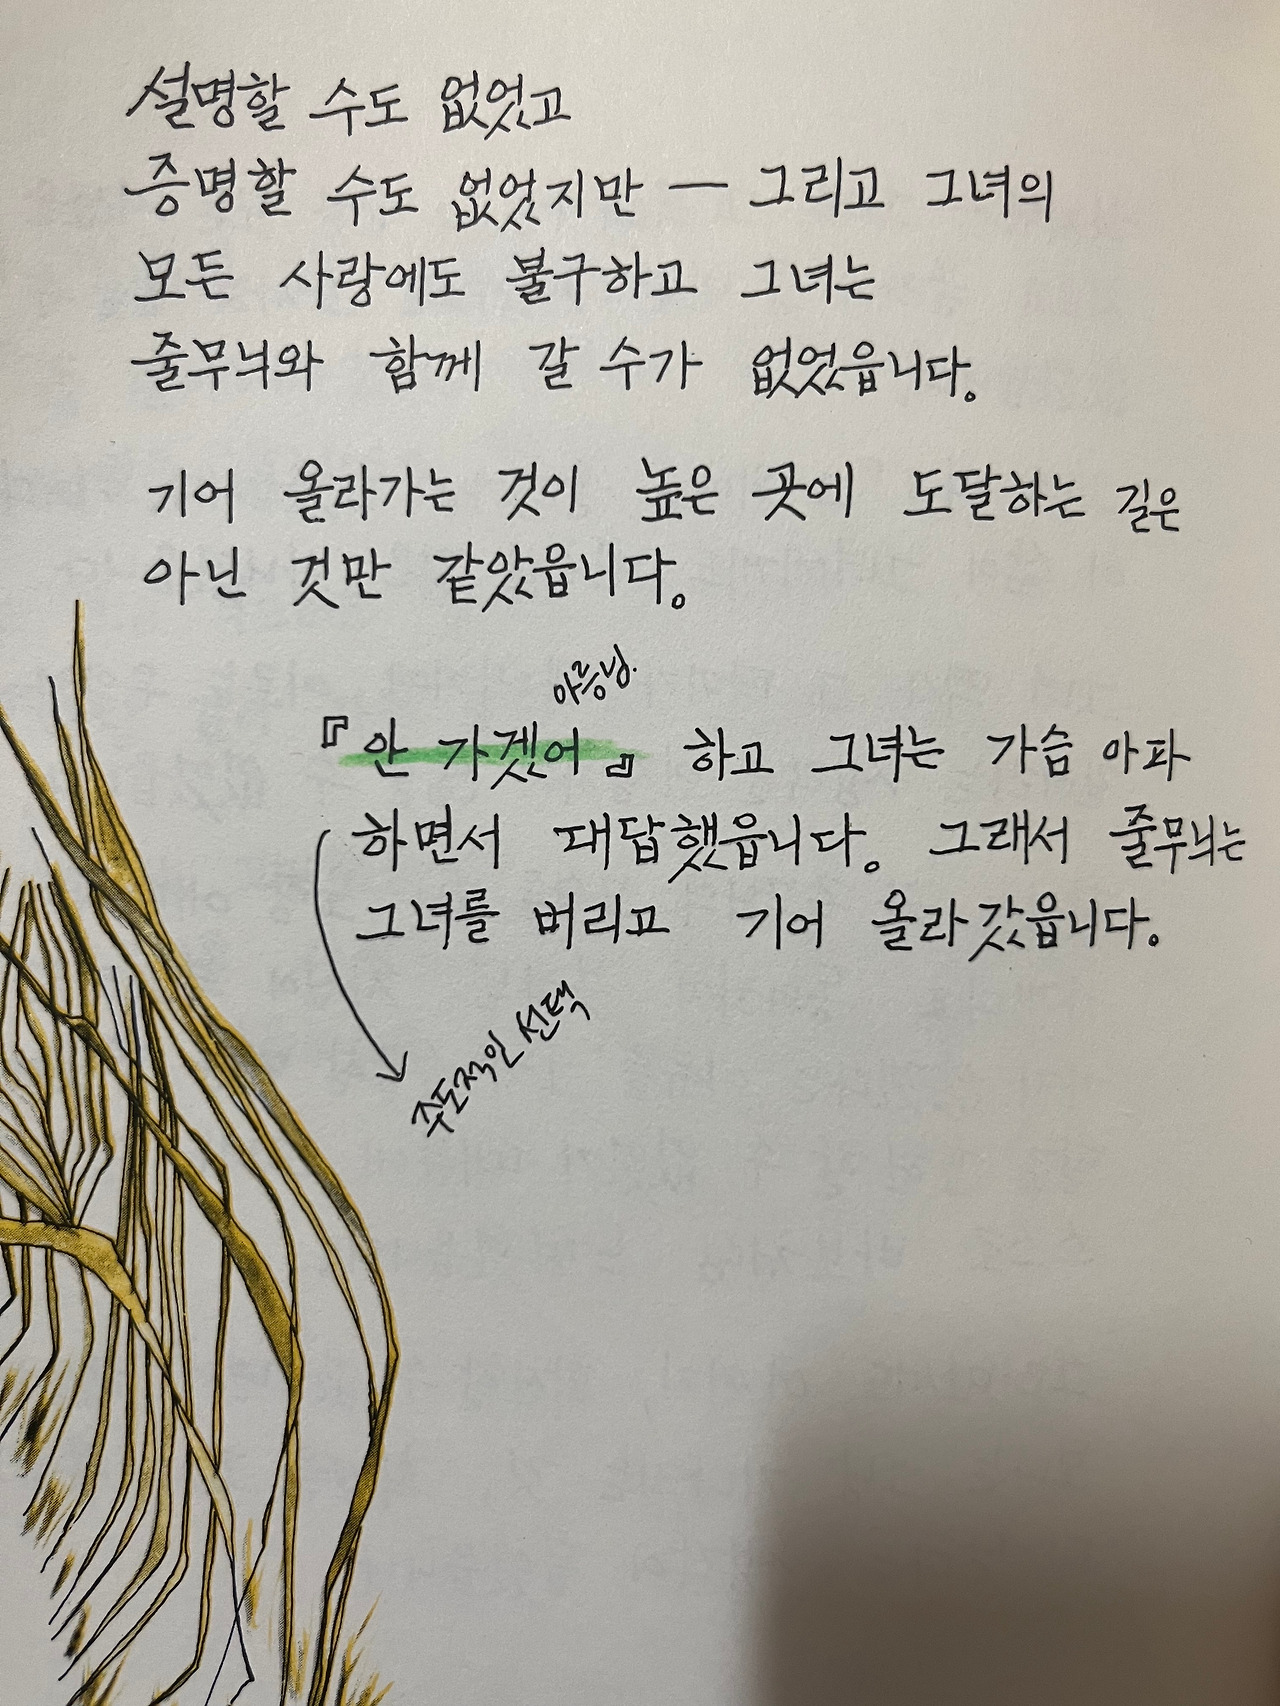 설명할 수도 없었고
증명할 수도 없었지만 — 그리고 그녀의
모든 사랑에도 불구하고 그녀는
줄무늬와 함께 갈 수가 없었읍니다.
기어 올라가는 것이 높은 곳에 도달하는 길은
아닌 것만 같았읍니다.
『안 가겠어』 하고 그녀는 가슴 아파
하면서 대답했읍니다. 그래서 줄무늬는
그녀를 버리고 기어 올라갔읍니다.
주도적인 선택